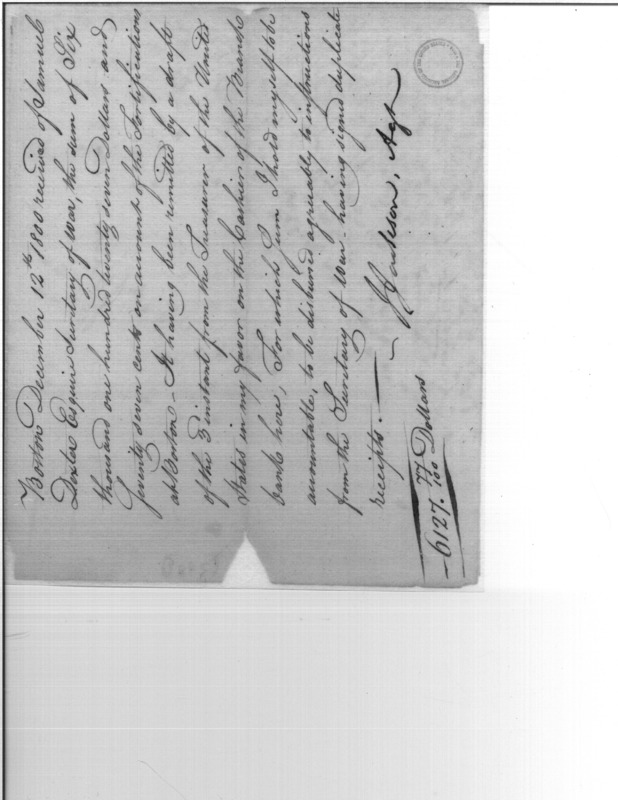 Boston December 12th 1800 received of Samuel
Dexter Esquire Secretary of War, the sum of Six
thousand one hundred twenty seven Dollars and
seventy seven cents on account of the Fortifications
at Boston — It having been remitted by a draft
of the 3 instant from the Treasurer of the United
States in my favor on the Cashier of the Branch
bank here, For which sum I hold myself to be
accountable, to be disbursed agreeable to instructions
from the Secretary of War - having signed duplicate
receipts. —
Jackson, Agt
6127. 77/100 Dollars